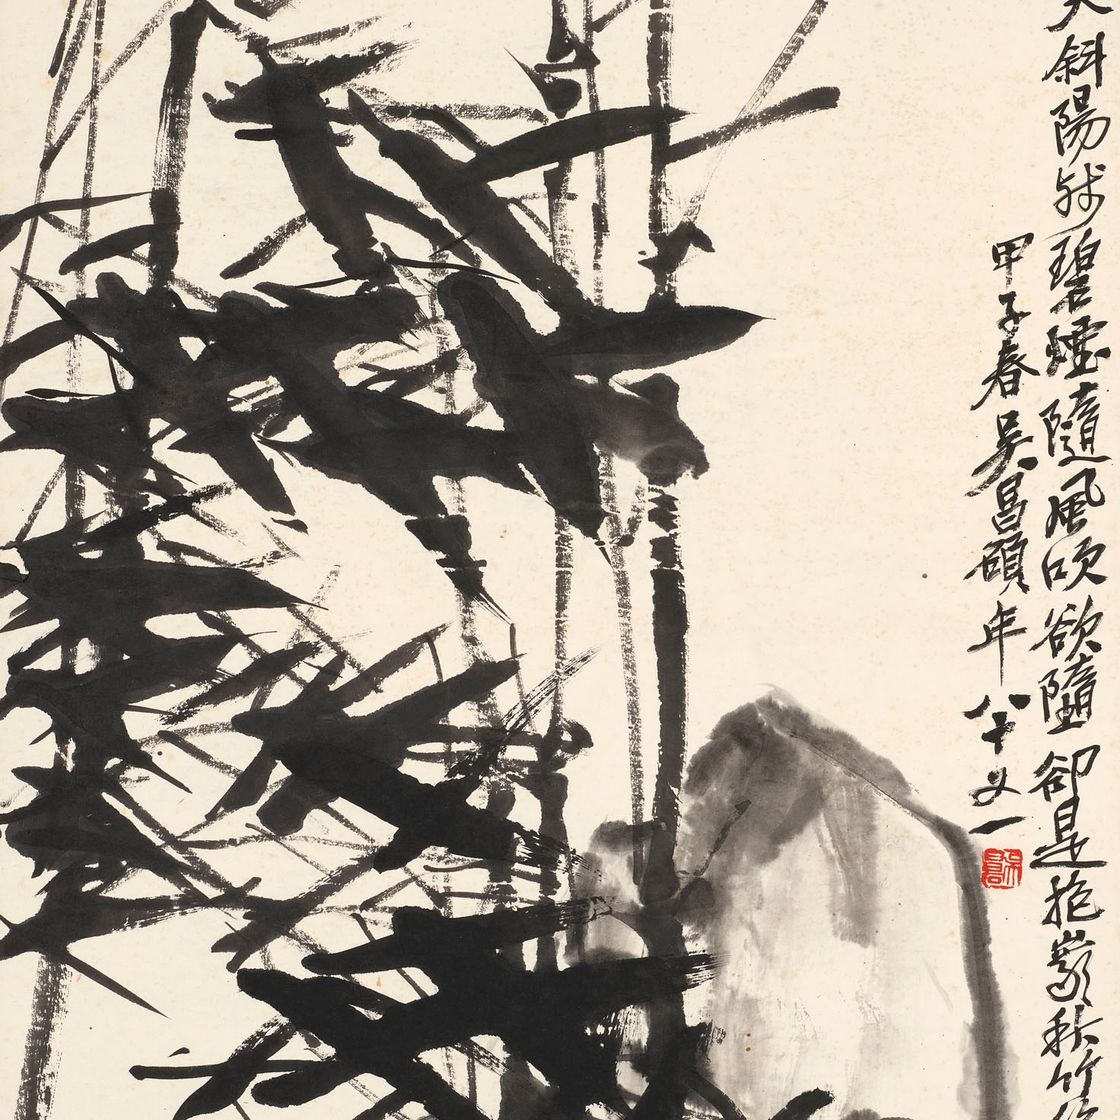 斜陽城碧煙隨風吹欲墮卻是抱巖秋竹
甲子春吳昌碩年八十又一